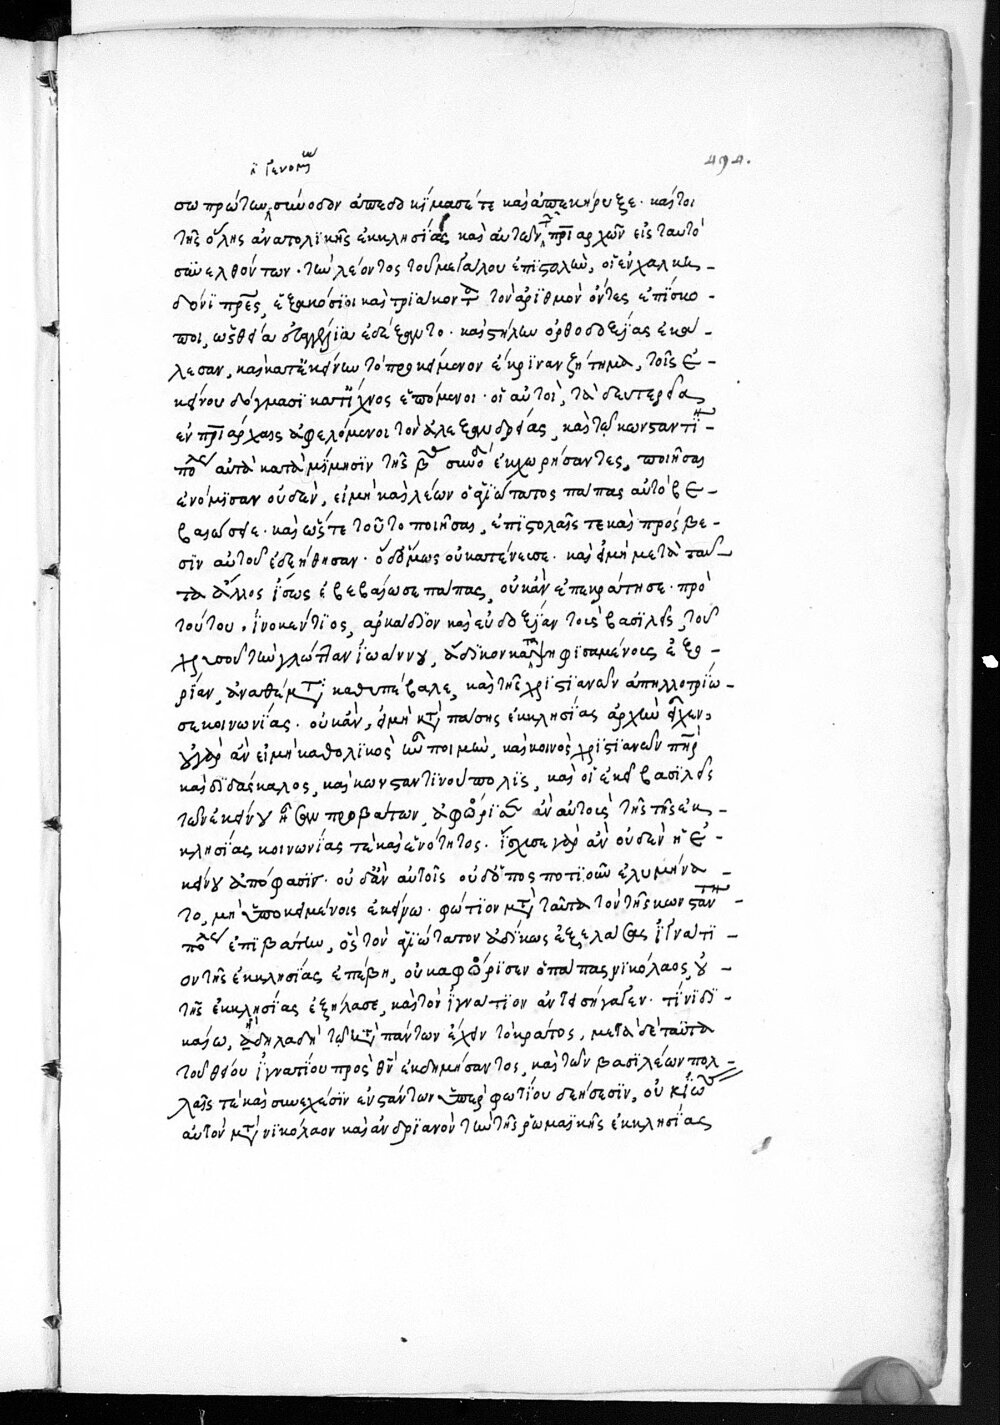 ἢ γενομ
494.
σω πρώτων σύνοδον ἀπεδοκίμασέ τε καὶ ἀπεκήρυξε· καίτοι
τῆς ὅλης ἀνατολικῆς ἐκκλησίας καὶ αὐτῶν πριαρχῶν εἰς ταυτὸ
συνελθόντων· τὴν λέοντος τοῦ μεγάλου ἐπιστολὴν, οἱ ἐν χαλκη-
δόνι πρες, ἑξακόσιοι καὶ τριάκοντα τὸν ἀριθμὸν ὄντες ἐπίσκο-
ποι, ὡς θεῖα εὐαγγέλια ἐδέξαντο· καὶ στήλην ὀρθοδοξίας ἐκά-
λεσαν, καὶ κατ' ἐκείνην τὸ προκείμενον ἔκριναν ζήτημα, τοῖς ἐ-
κείνου δόγμασι κατίχνος ἑπόμενοι· οἱ αὐτοὶ, τὰ δευτερεῖα
ἐν πριάρχαις ἀφελόμενοι τὸν ἀλεξανδρείας, καὶ τῷ κωνσταντι-
πολεως αὐτὰ κατὰ μίμησιν τῆς β συνοδ ἐκχωρήσαντες, ποιῆσαι
ἐνόμισαν οὐδὲν, εἰ μὴ καὶ λέων ὁ ἁγιώτατος πάπας αὐτὸ βε-
βαιώσειε· καὶ ὥστε τοῦτο ποιῆσαι, ἐπιστολαῖς τε καὶ πρέσβε-
σιν αὐτοῦ ἐδεήθησαν· ὁ δ' ὅμως οὐ κατένευσε· καὶ εἰ μὴ μετὰ ταῦ-
τα ἄλλος ἴσως ἐβεβαίωσε πάπας, οὐκ ἂν ἐπεκράτησε· πρὸ
τούτου, ἰνοκέντιος, ἀρκάδιον καὶ εὐδοξίαν τοὺς βασιλεῖς, τοῦ
χρυσοῦ τὴν γλῶτταν ἰωάννου, ἄδικον καταψηφισαμένους ἐξο-
ρίαν, ἀναθέματι καθυπέβαλε, καὶ τῆς χριστιανῶν ἀπηλλοτρίω-
σε κοινωνίας· οὐκ ἂν, εἰ μὴ κτ πάσης ἐκκλησίας ἀρχὴν εἶχεν,
οὐδ' ἂν εἰ μὴ καθολικὸς ὢν ποιμὴν, καὶ κοινὸς χριστιανῶν πηρ
καὶ διδάσκαλος, καὶ κωνσταντινούπολις, καὶ οἱ ἐκεῖ βασιλεῖς
τῶν ἐκείνου ἦσαν προβάτων, ἀφώρισεν ἂν αὐτοὺς τῆς τῆς ἐκ-
κλησίας κοινωνίας τὲ καὶ ἑνότητος· ἴσχυσε γὰρ ἂν οὐδὲν ἡ ἐ-
κείνου ἀπόφασιν· οὐδ' ἂν αὐτοῖς οὐδόπως ποτιοῦν ἐλυμήνα-
το, μὴ ὑποκειμένοις ἐκείνῳ· φώτιον μτ ταῦτα τὸν τῆς κωνσταντι-
πολεως ἐπιβάτην, ὃς τὸν ἁγιώτατον ἀδίκως ἐξελάσας ἰγνάτι-
ον τῆς ἐκκλησίας ἐπέβη, οὐκ ἀφώρισεν ὁ πάπας νικόλαος, οὐ
τῆς ἐκκλησίας ἐξήλασε, καὶ τὸν ἰγνάτιον ἀντεισήγαγεν· τίνι δι-
καίῳ, ἢ δηλαδὴ τῷ κτ πάντων ἔχειν τὸ κράτος, μετὰ δὲ ταῦτα
τοῦ θείου ἰγνατίου πρὸς θν ἐκδημήσαντος, καὶ τῶν βασιλέων πολ-
λαῖς τὲ καὶ συνεχέσιν ἐνστάντων ὑπὲρ φωτίου δεήσεσιν, οὐ
αὐτὸν μτ νικόλαον καὶ ἀνδριανὸν τὴν τῆς ῥωμαϊκῆς ἐκκλησίας